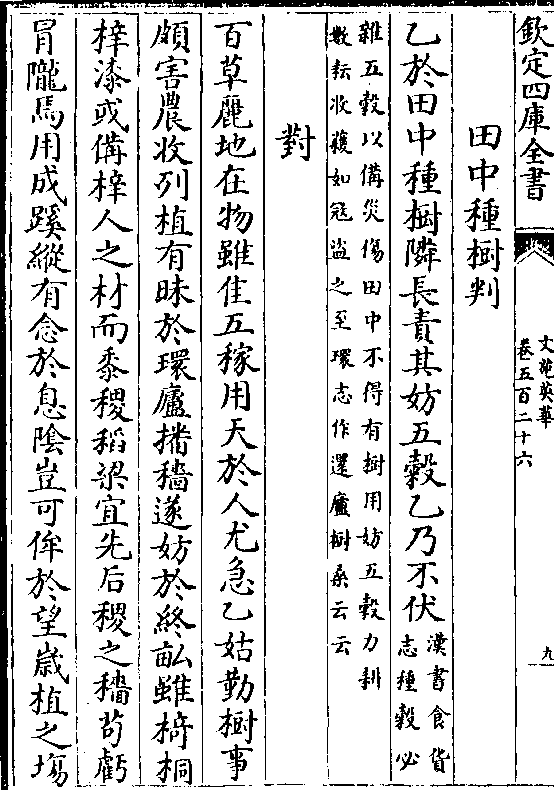 欽定四庫全書
文苑英華
卷五百二十六
九
田中種樹判
乙於田中種樹隣長責其妨五穀乙乃不伏漢書食貨志種穀必
雜五穀以備災傷田中不得有樹用妨五穀力耕
數耘收穫如宼盗之至環志作還廬樹桑云云
對
百草麗地在物雖佳五稼用天於人尤急乙姑勤樹事
頗害農收列植有昧於環廬播穡遂妨於終畆雖椅桐
梓漆或備梓人之材而黍稷稻梁宜先后稷之穡茍虧
冐隴焉用成蹊縱有念於息陰豈可侔於望歲植之塲